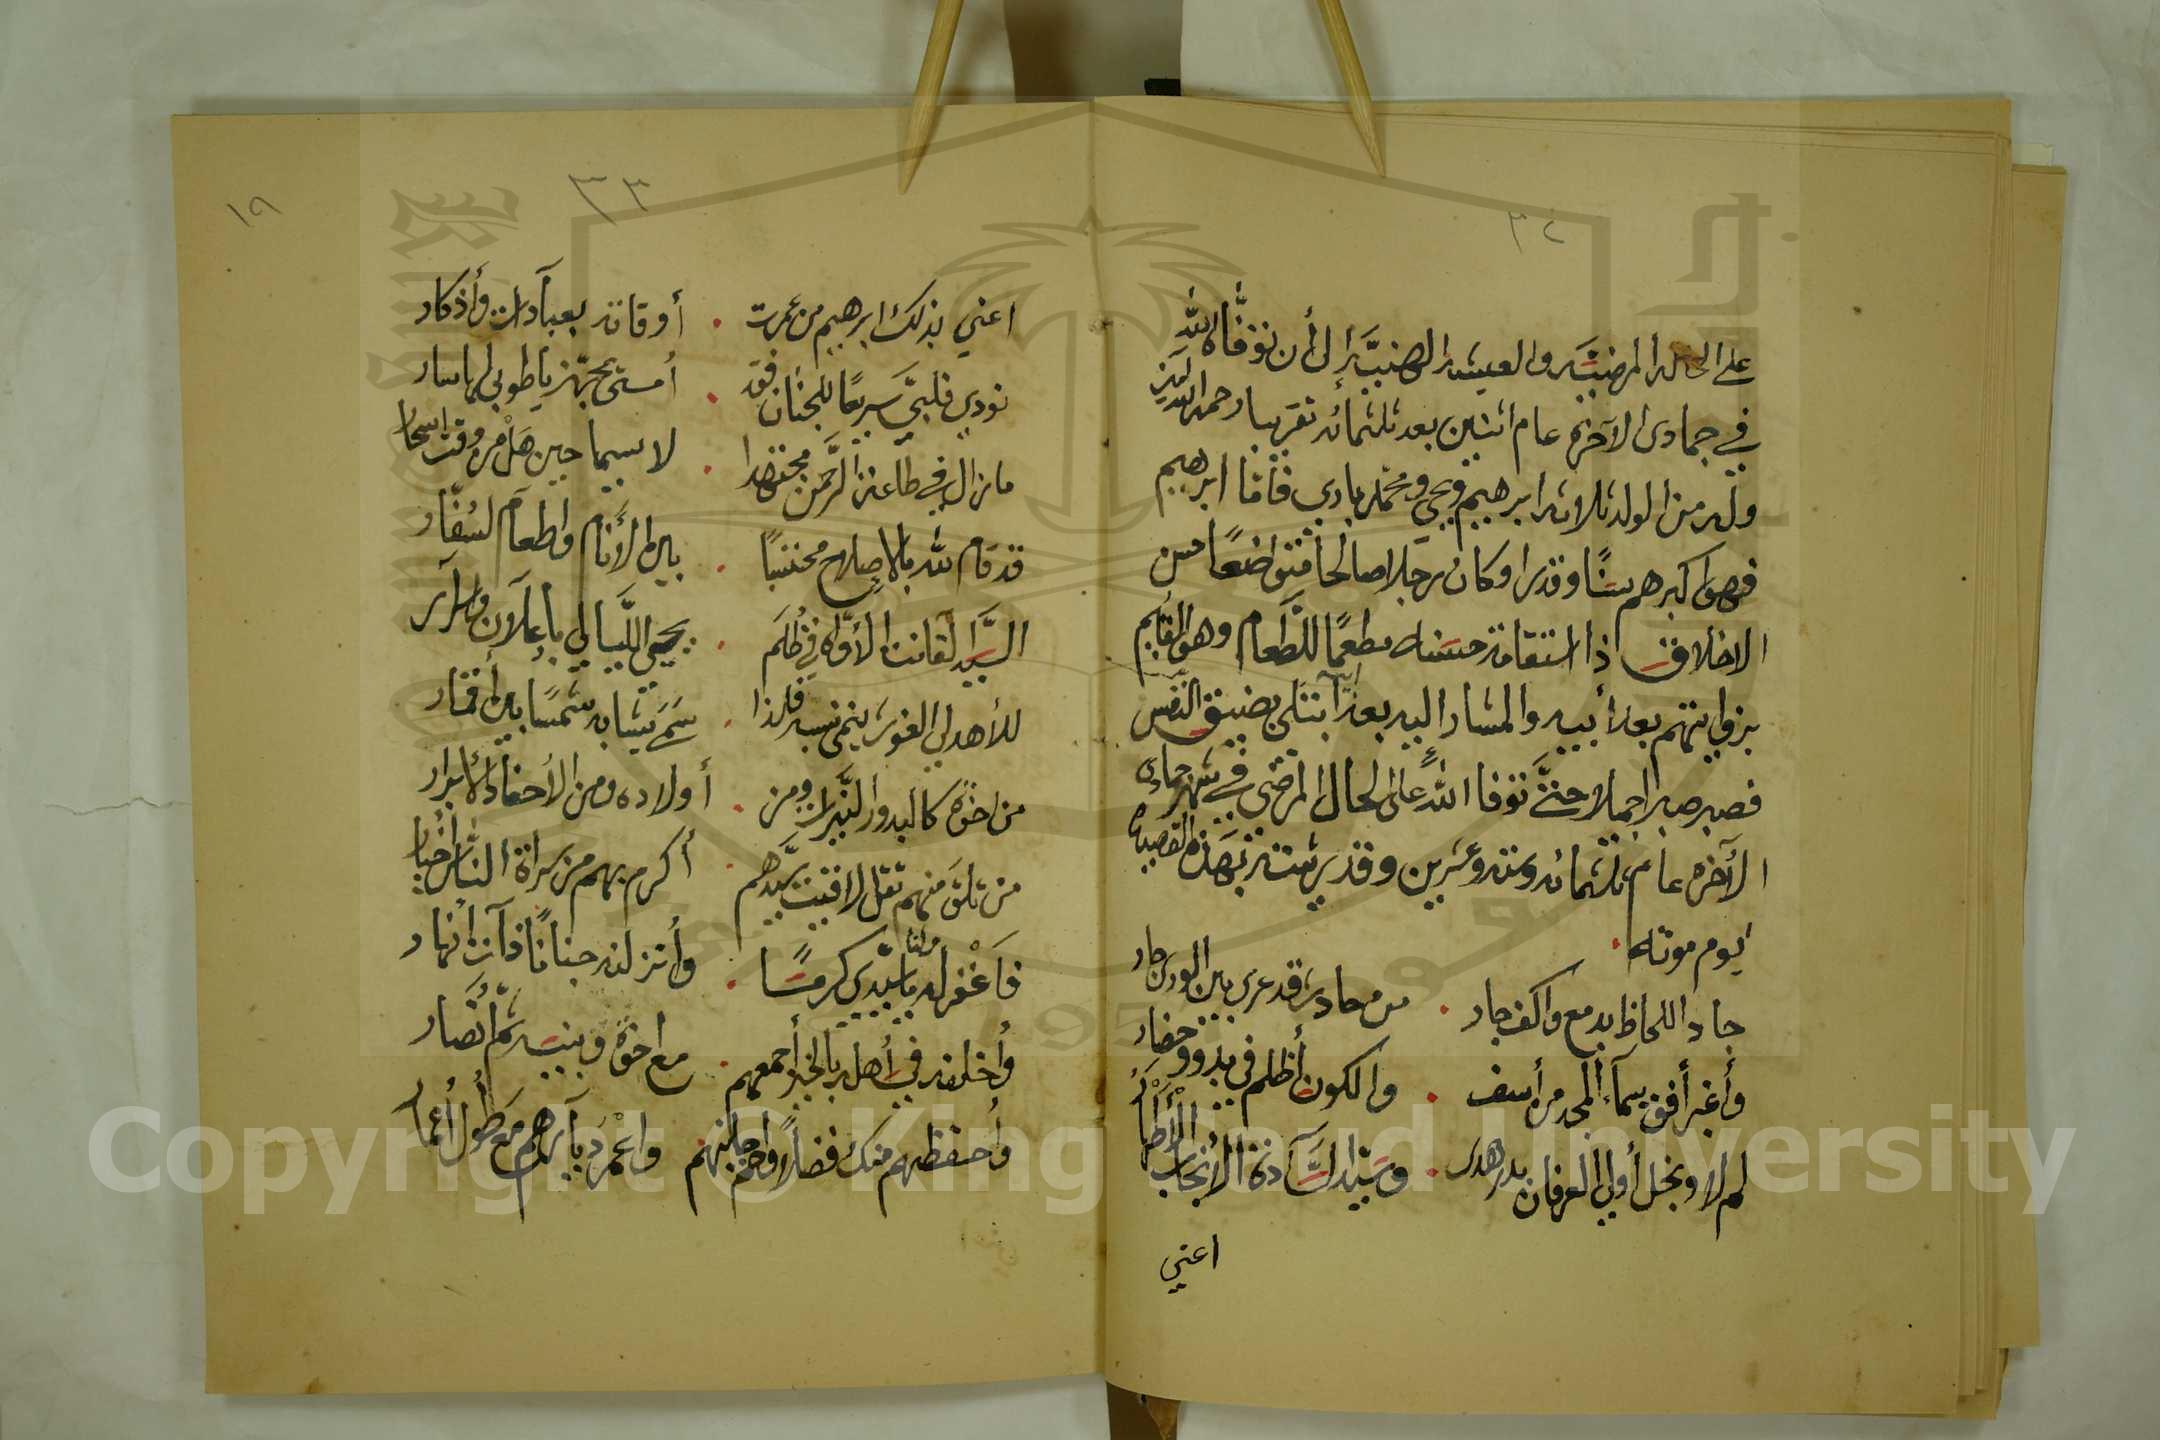 ٣٢
على الحالة المرضية والعيشة الهنية إلى أن توفاه الله
في جمادى الآخرة عام اثنين بعد ثلثمائة تقريبا رحمه الله آمين
وله من الولد ثلاثة ابرهيم ويحيى ومحمد بادي فأما ابرهيم
فهو اكبرهم سنًا وقدرا وكان رجلا صالحا متواضعًا حسن
الاخلاق ذا استقامة حسنه مطعمًا للطعام وهو القايم
بزوايتهم بعد أبيه والمشار اليه بعد آبتلي بضيق النفس
فصبر صبرا جميلا حتى توفا الله على الحال المرضي في شهر جمادى
الآخره عام ثلثمائه وستة وعشرين وقد رثيته بهذه القصيدة
يوم موته
جاد اللحاظ بدمع واكف جار من حادث قد عرى بين الورى جار
وأغبر أفق سماء المجد من أسف والكون أظلم في بدو وحضار
لم لا ونجل أولي العرفان بدر هدى وسيد السادة الأنجاب الأطهار
اعني
١٩
٣٣
اعني بذلك ابرهيم من عمرت أوقاته بعبادات وأذكار
نودي فلبى سريعًا للجنان فقد أمسى بحيهز يا طوبى لها سار
مازال في طاعة الرحمن مجتهدا لا سيما حين هل من وقت اسحار
قد قام لله بالإصلاح محتسبًا بين الأنام واطعام لسفار
السيد القانت الأواه في ظلم يحيي الليالي بإعلان واسرار
للأهدلي الغوث ينمى نسبه فلذا سمى يشابه شمسًا بين أقمار
من اخوة كالبدور النيرات ومن أولاده ومن الأحفاد الابرار
من تلق منهم تقل لاقيت سيدهم أكرم بهم من سراة الناس أخيار
فاغفر له يا سيدي كرمًا وأنزلنه جنانًا ذات أنهار
منا
وأخلفنه في أهله بالخير أجمعهم مع اخوة وبنيه ثم أنصار
وأحفظهم منك فضلًا واحمِ جملتهم واعمر ديارهم مع طول أعمار
Copyright © King Saud University
1957